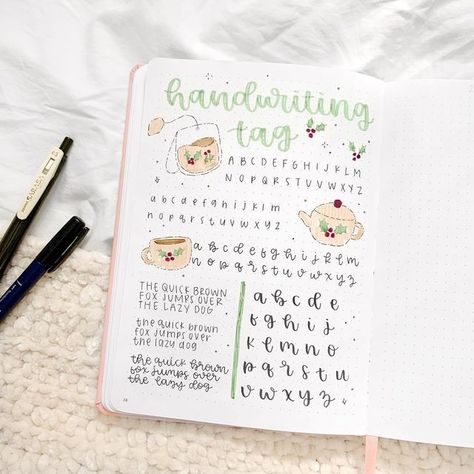 handwriting
tag
A B C D E F G H I J K L M
N O P Q R S T U V W X Y Z
a b c d e f g h i j k l m
n o p q r s t u v w x y z
a b c d e f g h i j k l m
n o p q r s t u v w x y z
THE QUICK BROWN
FOX JUMPS OVER
THE LAZY DOG
the quick brown
fox jumps over
the lazy dog
the quick brown
fox jumps over
the lazy dog
a b c d e
f g h i j
k l m n o
p q r s t u
v w x y z